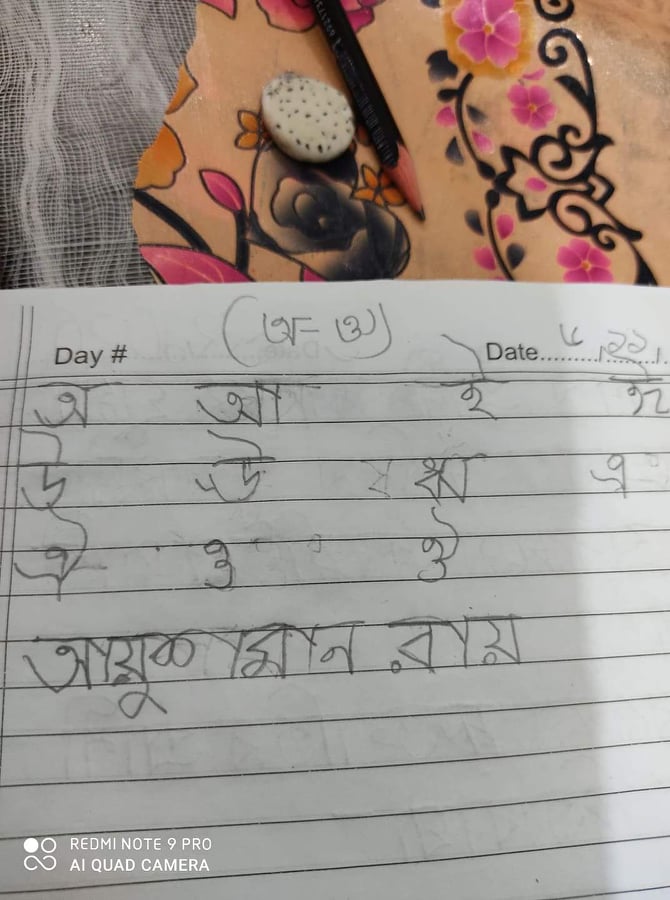 (অ - ঔ)
Day # Date...........
অ আ ই ঈ
উ ঊ ঋ এ
ঐ ও ঔ
আয়ুষ্মান রায়
REDMI NOTE 9 PRO
AI QUAD CAMERA